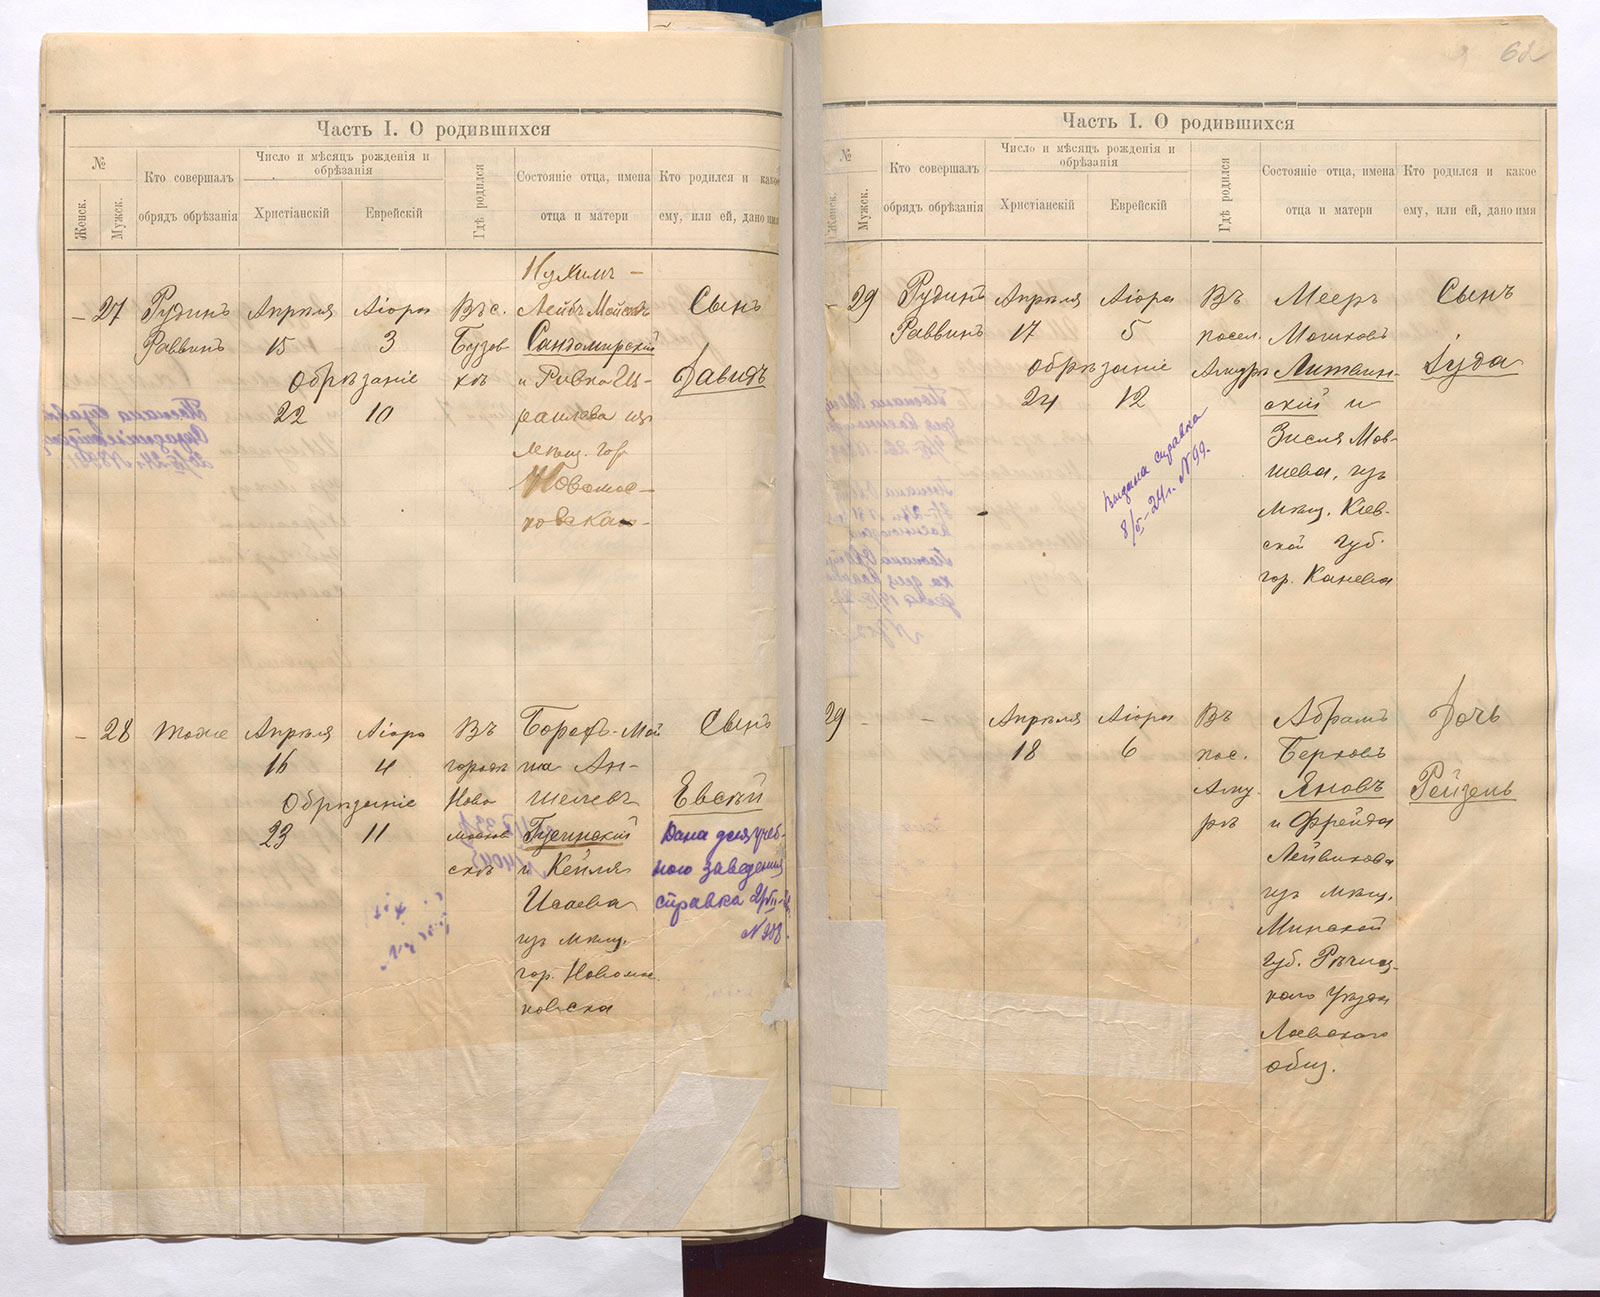 Часть I. О родившихся
№
Женск.
Мужск.
Кто совершалъ
обрядъ обрѣзанія
Число и мѣсяцъ рожденія и
обрѣзанія
Христіанскій
Еврейскій
Гдѣ родился
Состояніе отца, имена
отца и матери
Кто родился и какое
ему, или ей, дано имя
— 27
Рудинъ
Раввинъ
Апрѣля
15
Аіора
3
Обрѣзаніе
22
10
Въ с.
Бузов
кѣ
Нухимъ —
Лейбъ Мойсеевъ
Сандомирскій
и Ривка Из-
раилева изъ
мѣщ. гор.
Новомос-
ковска —
Сынъ
Давидъ
— 28
тоже
Апрѣля
16
Аіора
4
Обрѣзаніе
23
11
Въ
городѣ
Ново
москов
скѣ
Борохъ-Мой
ша Ан-
шелевъ
и Кейля
Исаева
изъ мѣщ.
гор. Новомос
ковска
Сынъ
Евсѣй
Дана для учеб-
наго заведения
справка
62
Часть I. О родившихся
№
Женск.
Мужск.
Кто совершалъ
обрядъ обрѣзанія
Число и мѣсяцъ рожденія и
обрѣзанія
Христіанскій
Еврейскій
Гдѣ родился
Состояніе отца, имена
отца и матери
Кто родился и какое
ему, или ей, дано имя
29
Рудинъ
Раввинъ
Апрѣля
17
Аіора
5
Обрѣзаніе
24
12
Выдана справка
8/V-24 г. N 99.
Въ
посел.
Амурѣ
Мееръ
Мошковъ
Литвин-
скій и
Зисля Мов-
шева, изъ
мѣщ. Кіев-
ской губ.
гор. Канева
Сынъ
Іуда
29
—
—
Апрѣля
18
Аіора
6
Въ
пос.
Аму-
рѣ
Абрамъ
Берковъ
Яновъ
и Фрейда
Лейвикова
изъ мѣщ.
Минской
губ. Рѣчиц-
каго уѣзда
Лоевскаго
общ.
Дочь
Рейзель